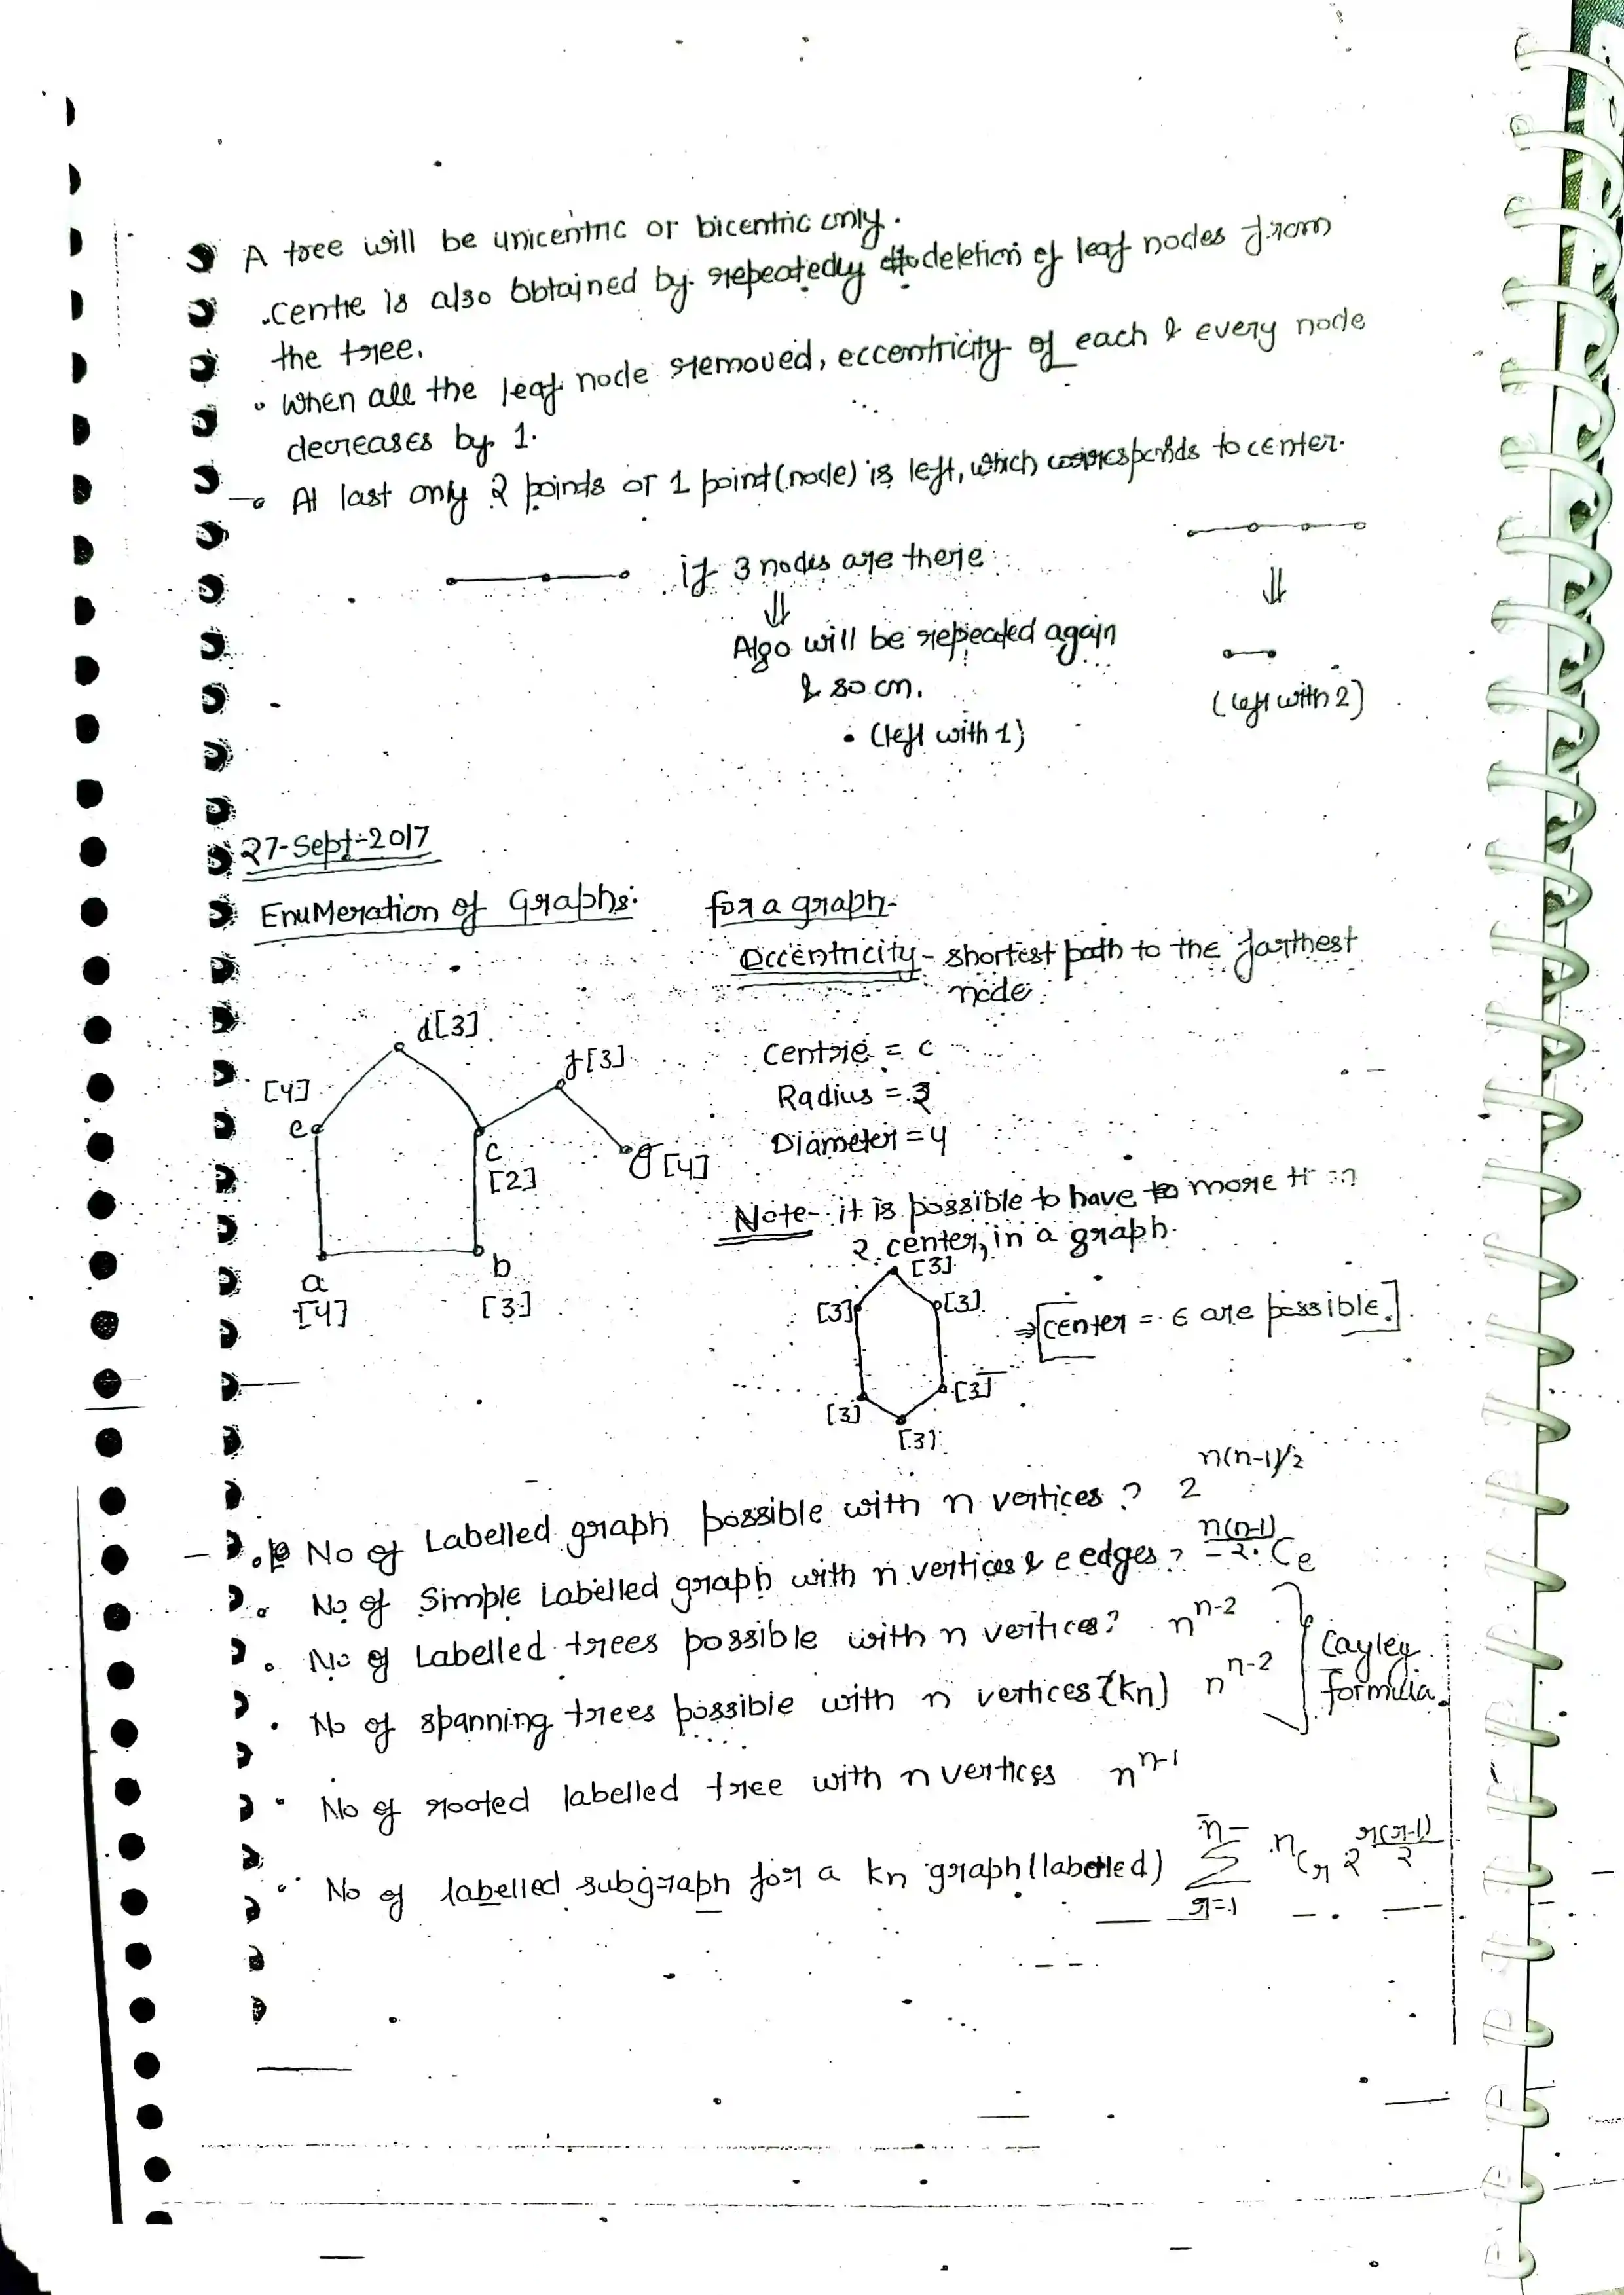 A tree will be unicentric or bicentric only.
. Centre is also obtained by repeatedly deletion of leaf nodes from
the tree.
• When all the leaf node removed, eccentricity of each & every node
decreases by 1.
• At last only 2 points or 1 point (node) is left, which corresponds to center.
if 3 nodes are there
⇓
⇓
Algo will be repeated again
& so on.
(left with 2)
• (left with 1)
27-Sept-2017
Enumeration of Graphs:
for a graph-
Eccentricity - shortest path to the farthest
node.
d[3]
f[3]
[4]
e
c
[2]
g[4]
a
[4]
b
[3]
Centre = c
Radius =
Diameter = 4
Note- it is possible to have more than
2 center, in a graph.
[3]
[3]
[3]
⇒ [center = 6 are possible.]
[3]
[3]
[3]
• No of Labelled graph possible with n vertices? 2^{n(n-1)/2}
• No of Simple Labelled graph with n vertices & e edges? ^{n(n-1)/2}C_e
• No of Labelled trees possible with n vertices? n^{n-2}
• No of spanning trees possible with n vertices? (kn) n^{n-2}
Cayley
formula.
• No of rooted labelled tree with n vertices n^{n-1}
• No of labelled subgraph for a kn graph (labelled) \sum_{r=1}^{n} ^nC_r 2^{r(r-1)/2}